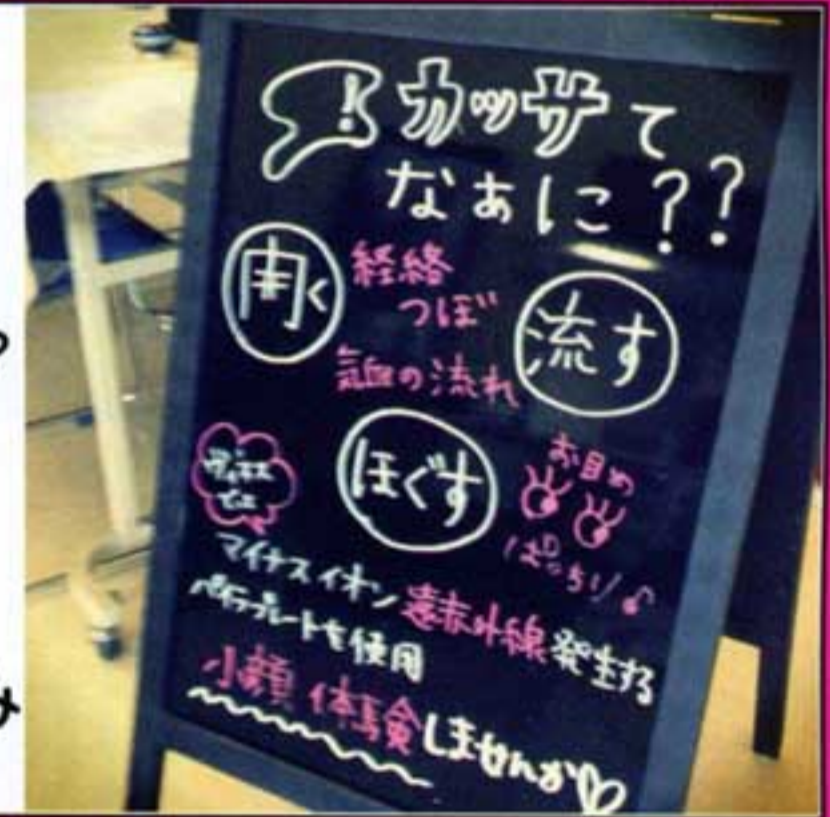 ！カッサて
なぁに？？
開く
経絡
つぼ
気血の流れ
流す
ほぐす
お目め
ぱっちり♪
マイナスイオン遠赤外線発生する
プレートを使用
小顔体験しませんか♡